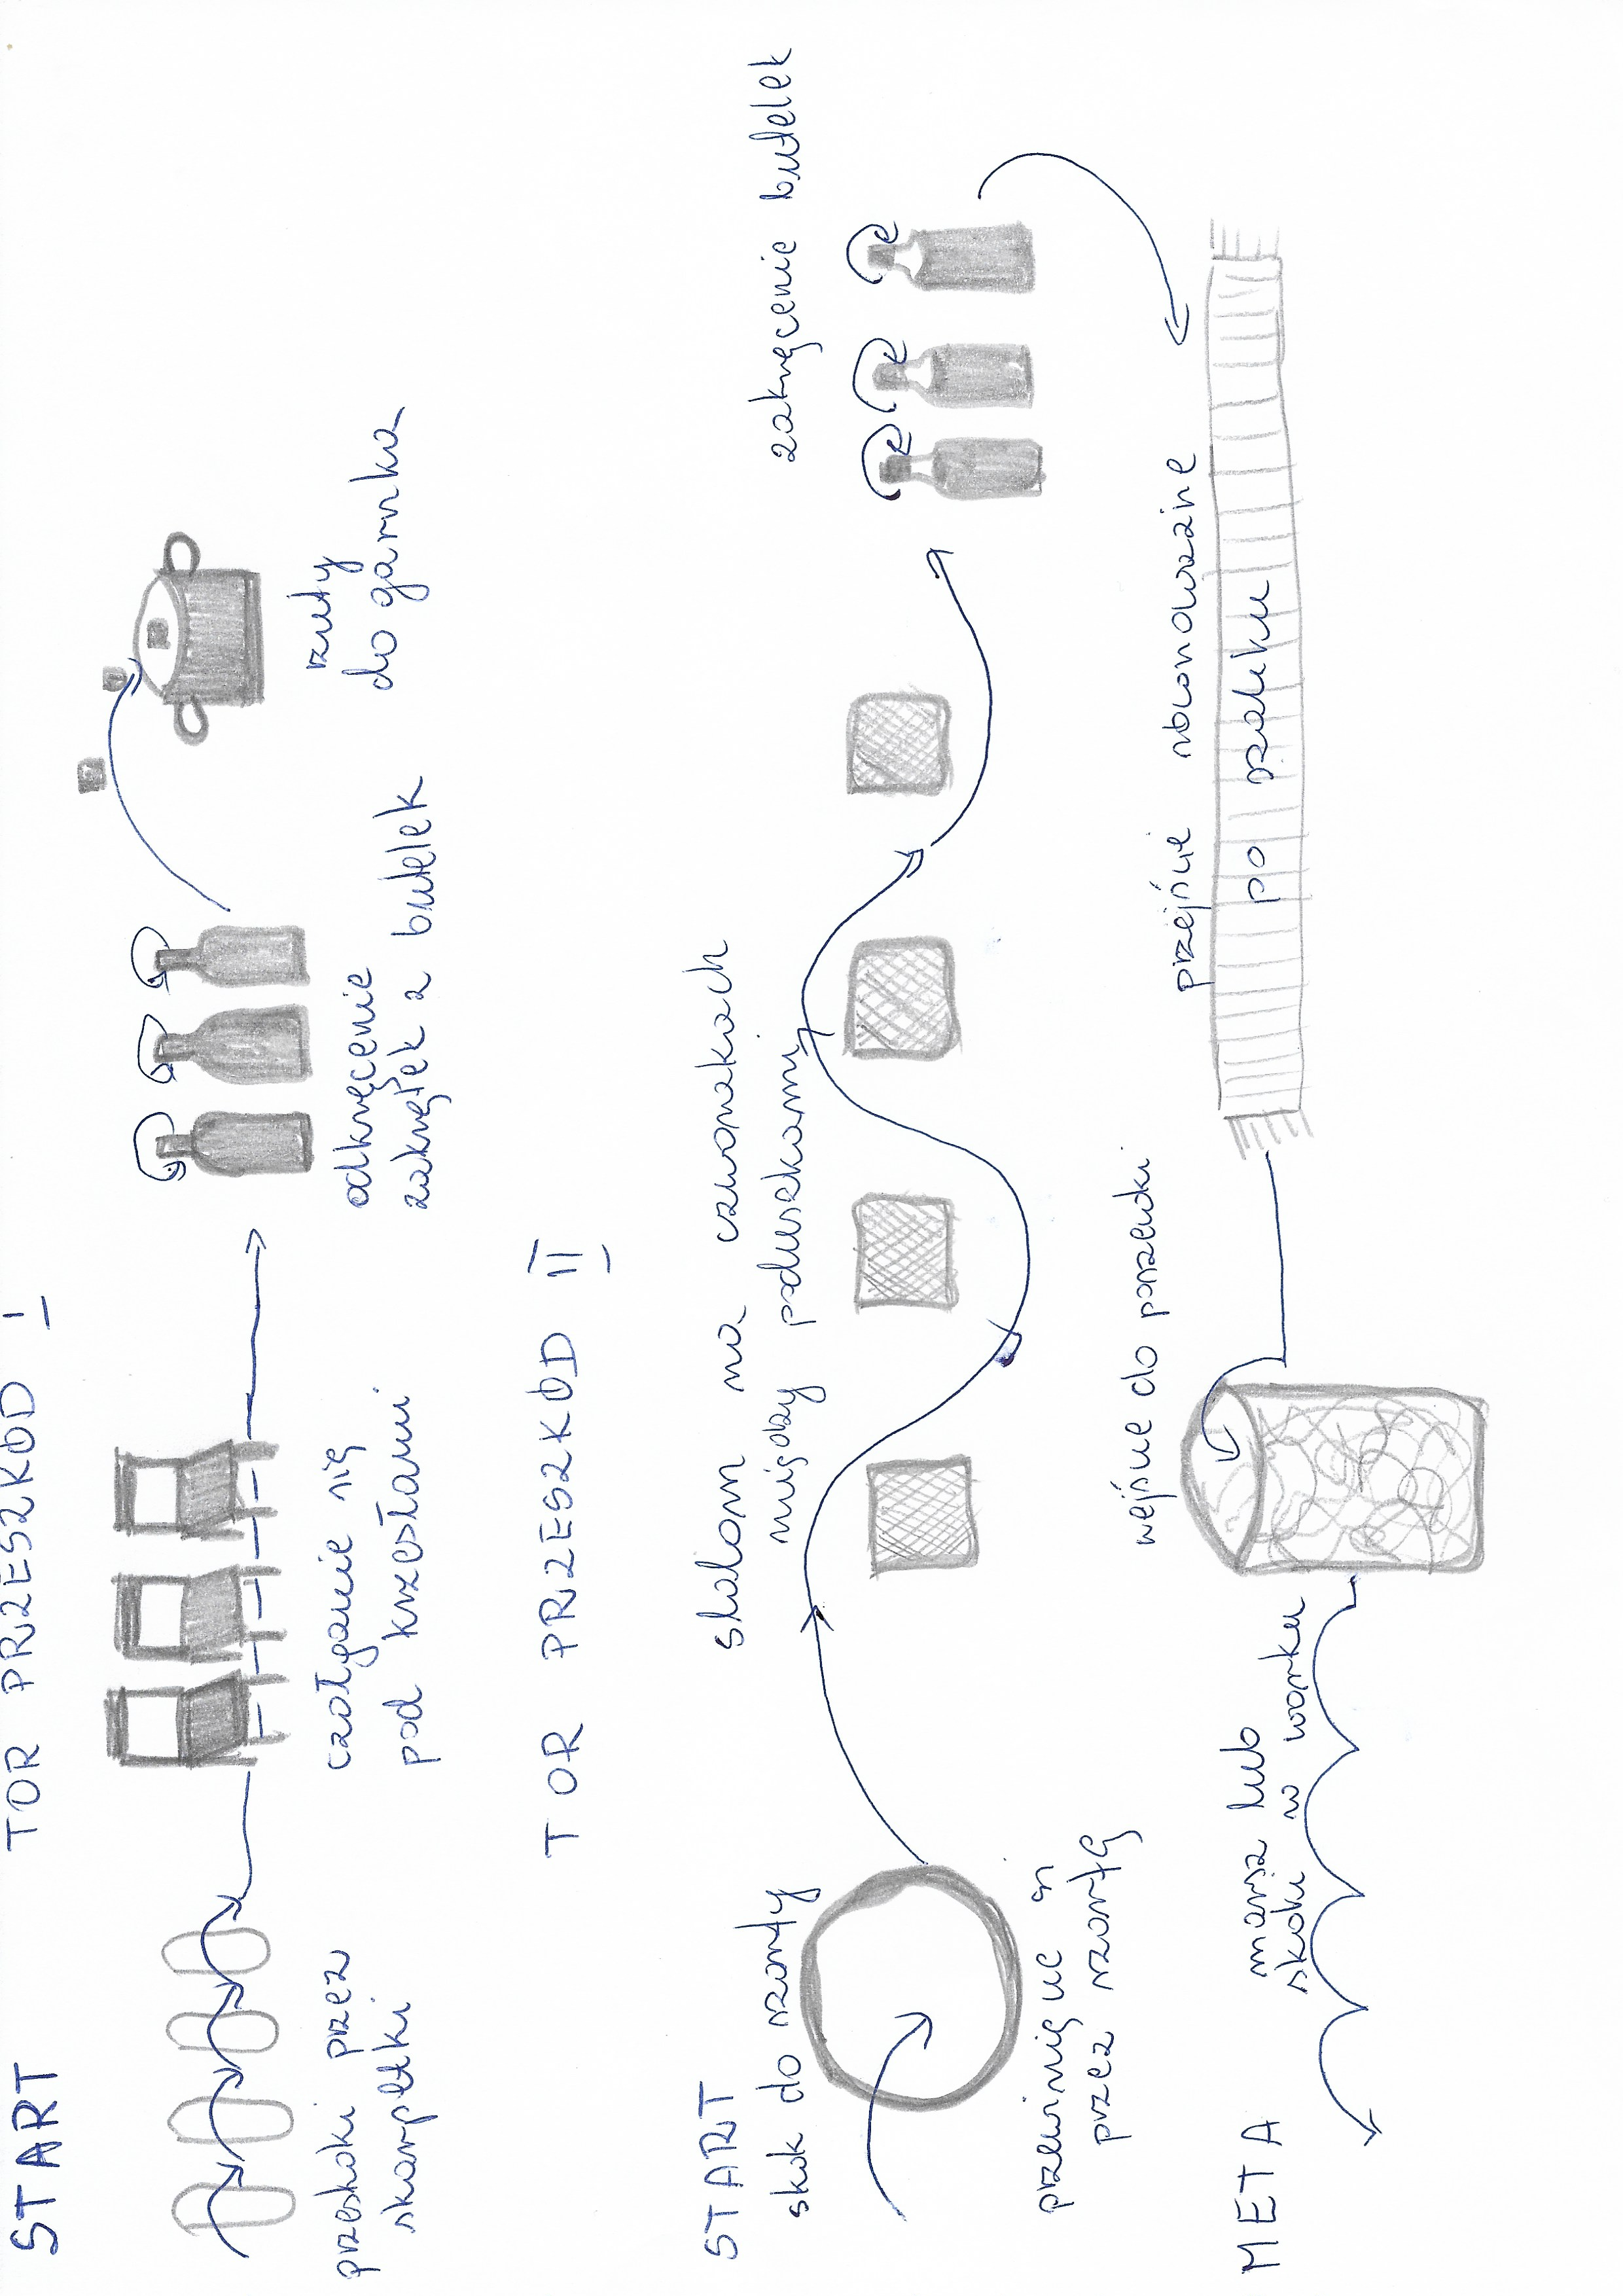 TOR PRZESZKÓD I
START
przeskoki przez
skarpetki
czołganie się
pod krzesłami
odkręcenie
zakrętek z butelek
rzuty
do garnka
TOR PRZESZKÓD II
START
skok do szarfy
przewinięcie się
przez szarfę
slalom na czworakach
między poduszkami
zakręcenie butelek
przejście równoważne
po szaliku
wejście do poszewki
marsz lub
skoki w worku
META